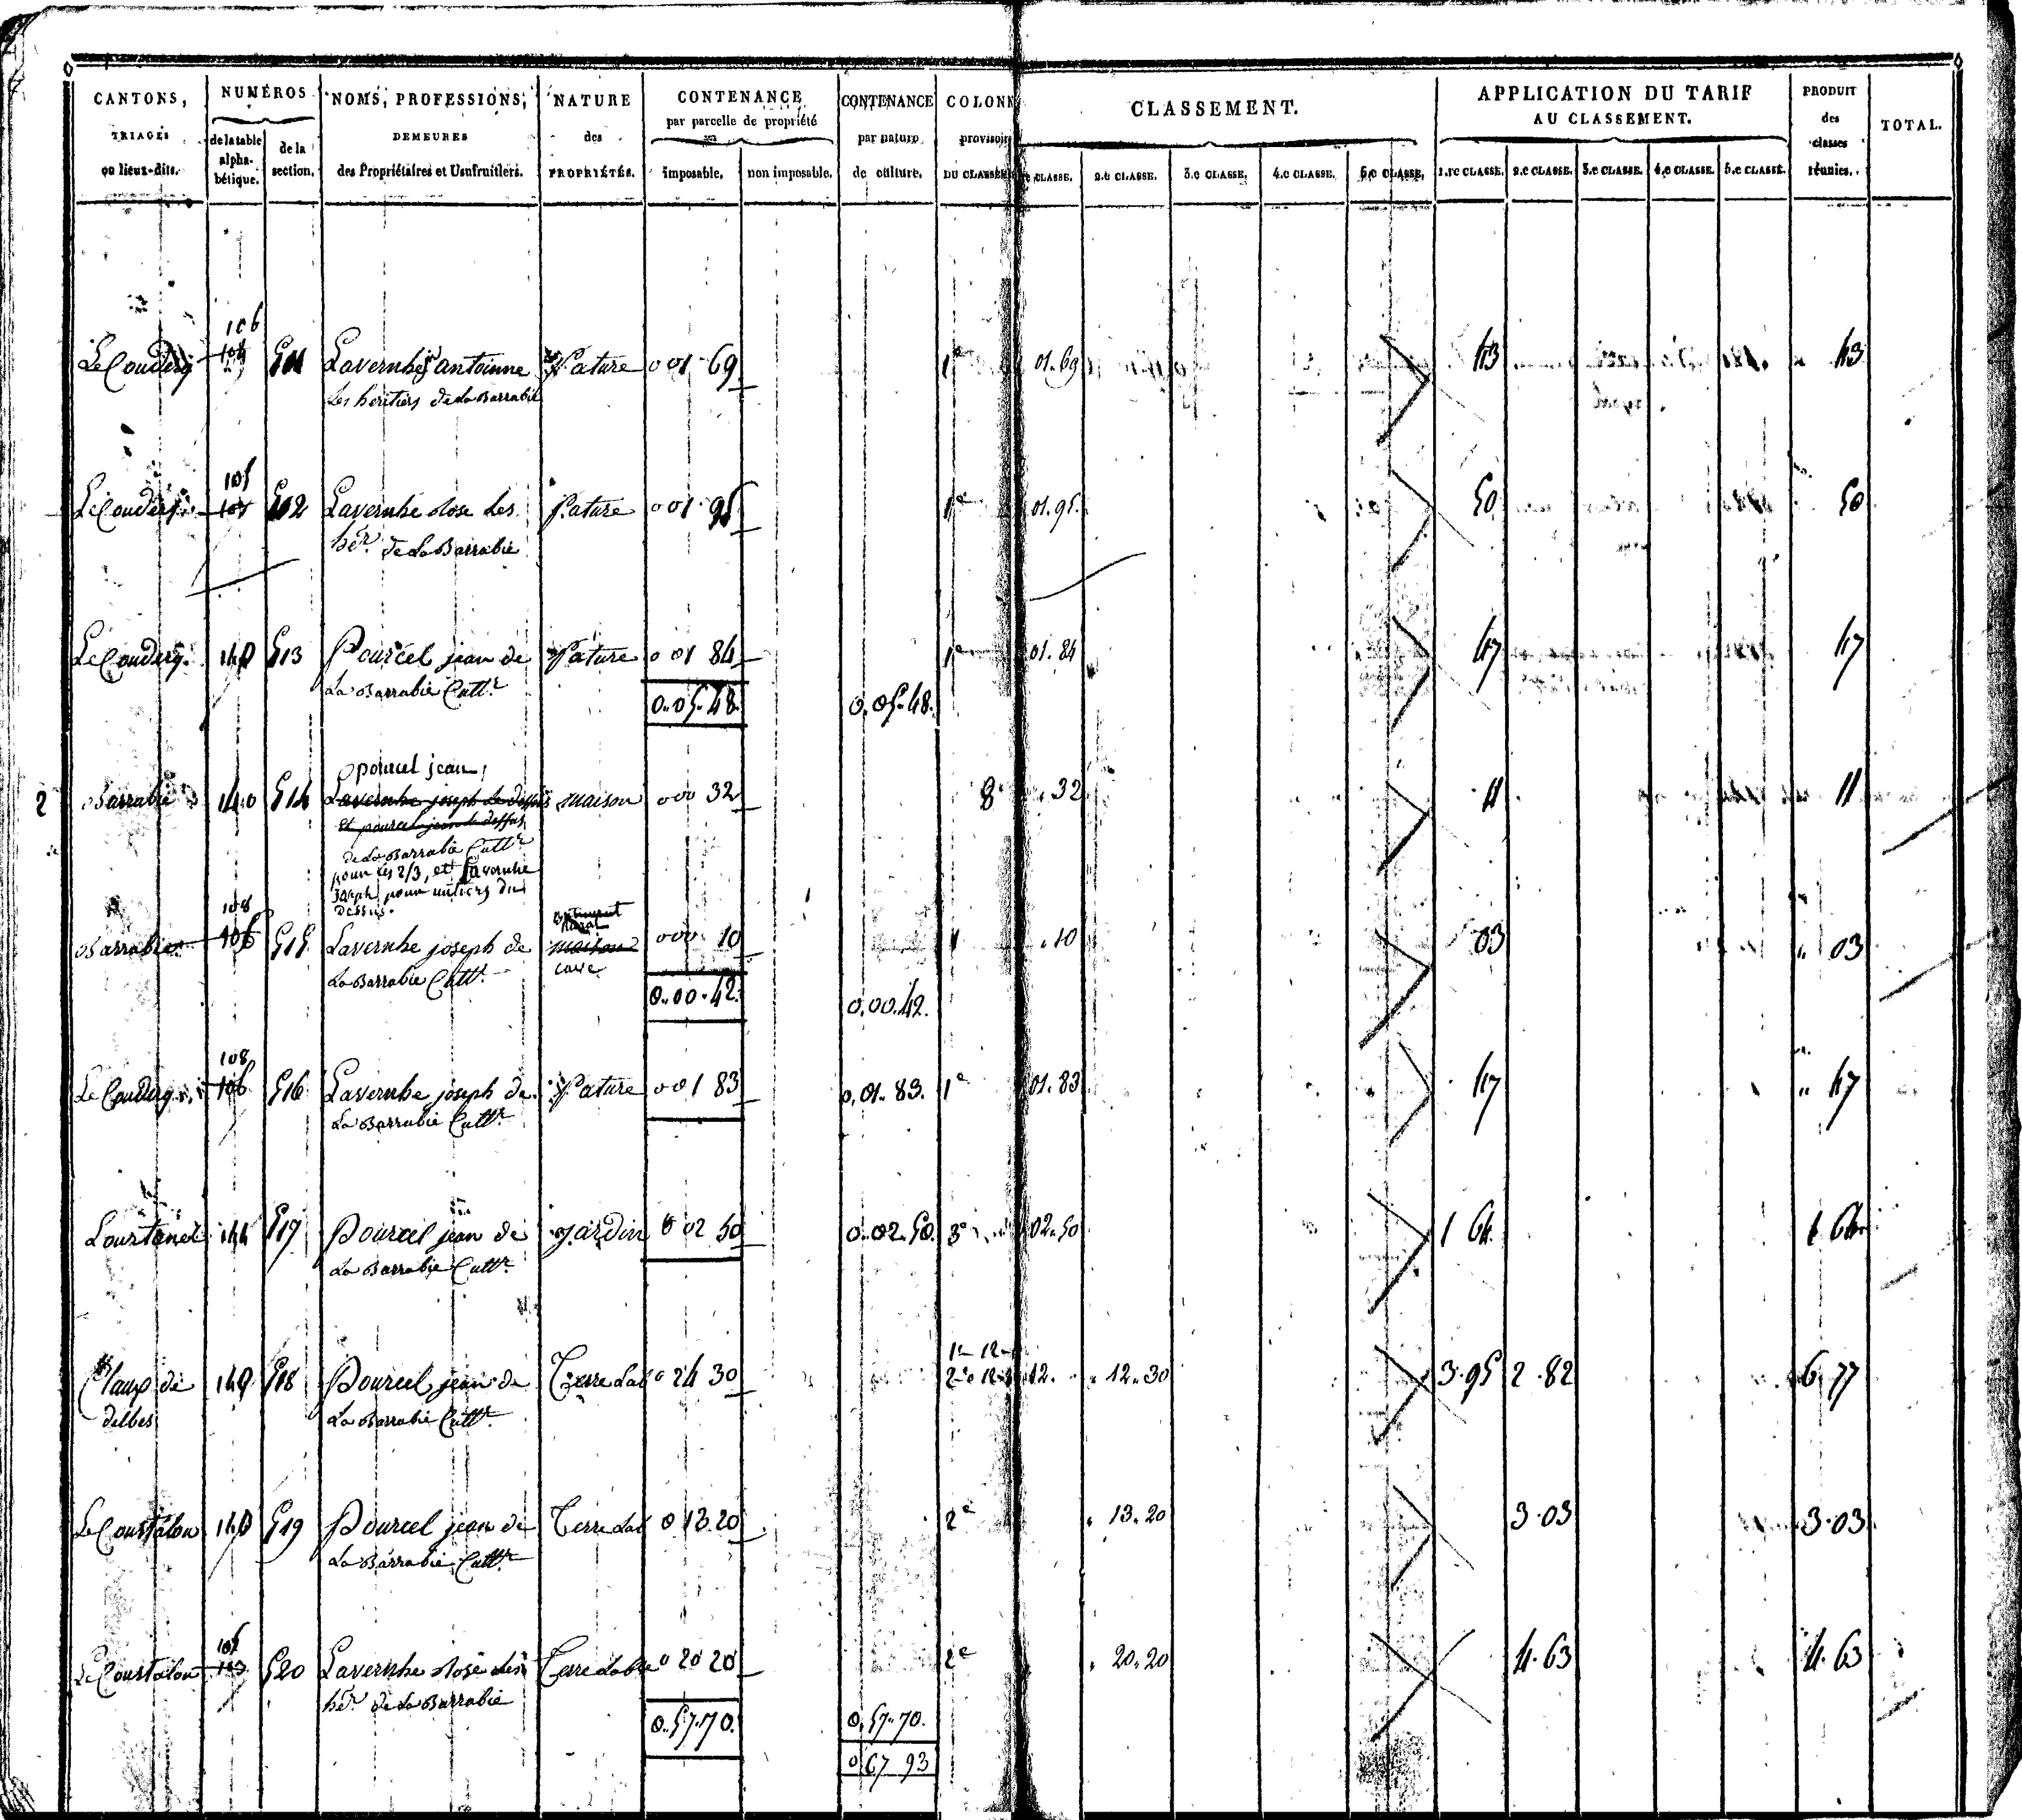 CANTONS, TRIAGES ou lieux-dits.
NUMÉROS de la table alphabétique. de la section.
NOMS, PROFESSIONS, DEMEURES des Propriétaires et Usufruitiers.
NATURE des PROPRIÉTÉS.
CONTENANCE par parcelle de propriété imposable. non imposable.
CONTENANCE par nature de culture.
COLONN provisoir DU CLASSEM
CLASSEMENT.
CLASSE. 2.e CLASSE. 3.e CLASSE. 4.e CLASSE. 5.e CLASSE.
APPLICATION DU TARIF AU CLASSEMENT.
1.re CLASSE. 2.e CLASSE. 3.e CLASSE. 4.e CLASSE. 5.e CLASSE.
PRODUIT des classes réunies.
TOTAL.
106
Le Couderq G11 Lavernhe antoinne Pature 0 01 69 1e 01.69 43 43
Les heritiers de La Barrabie
105
Le Couderq G12 Lavernhe Rose Les Pature 0 01 95 1e 01.95 50 50
hér. de La Barrabie
Le Couderq 140 G13 Pourcel jean de Pature 0 01 84 1e 01.84 47 47
La Barrabie Cultr
0.05.48. 0.05.48.
pourcel jean
2 Barrabie 140 G14 Lavernhe joseph de dessus maison 0 00 32 8 .32 11 11
et pourcel jean de dessus
de La Barrabie Cultr
pour les 2/3, et Lavernhe
Joseph pour un tiers du
dessus.
108
Barrabie 106 G15 Lavernhe joseph de maison 0 00 10 1 .10 03 03
La Barrabie Cultr cave
0.00.42. 0.00.42.
108
Le Couderq 106 G16 Lavernhe joseph de Pature 0 01 83 0.01.83. 1e 01.83 47 47
La Barrabie Cultr
Lourtanel G17 Pourcel jean de jardin 0 02 50 0.02.50. 3e 02.50 1 64 1 64
La Barrabie Cultr
1e 12
Claux de 140 G18 Pourcel jean de Terre Lab 0 24 30 2e 12.3 12. 12.30 3.95 2.82 6.77
delbes La Barrabie Cultr
Le Coustalou 140 G19 Pourcel jean de Terre Lab 0 13 20 2e 13.20 3.03 3.03
La Barrabie Cultr
105
Le Coustalou G20 Lavernhe Rose Les Terre Lable 0 20 20 2e 20.20 4.63 4.63
hér. de La Barrabie
0.57.70. 0.57.70.
0 67 93